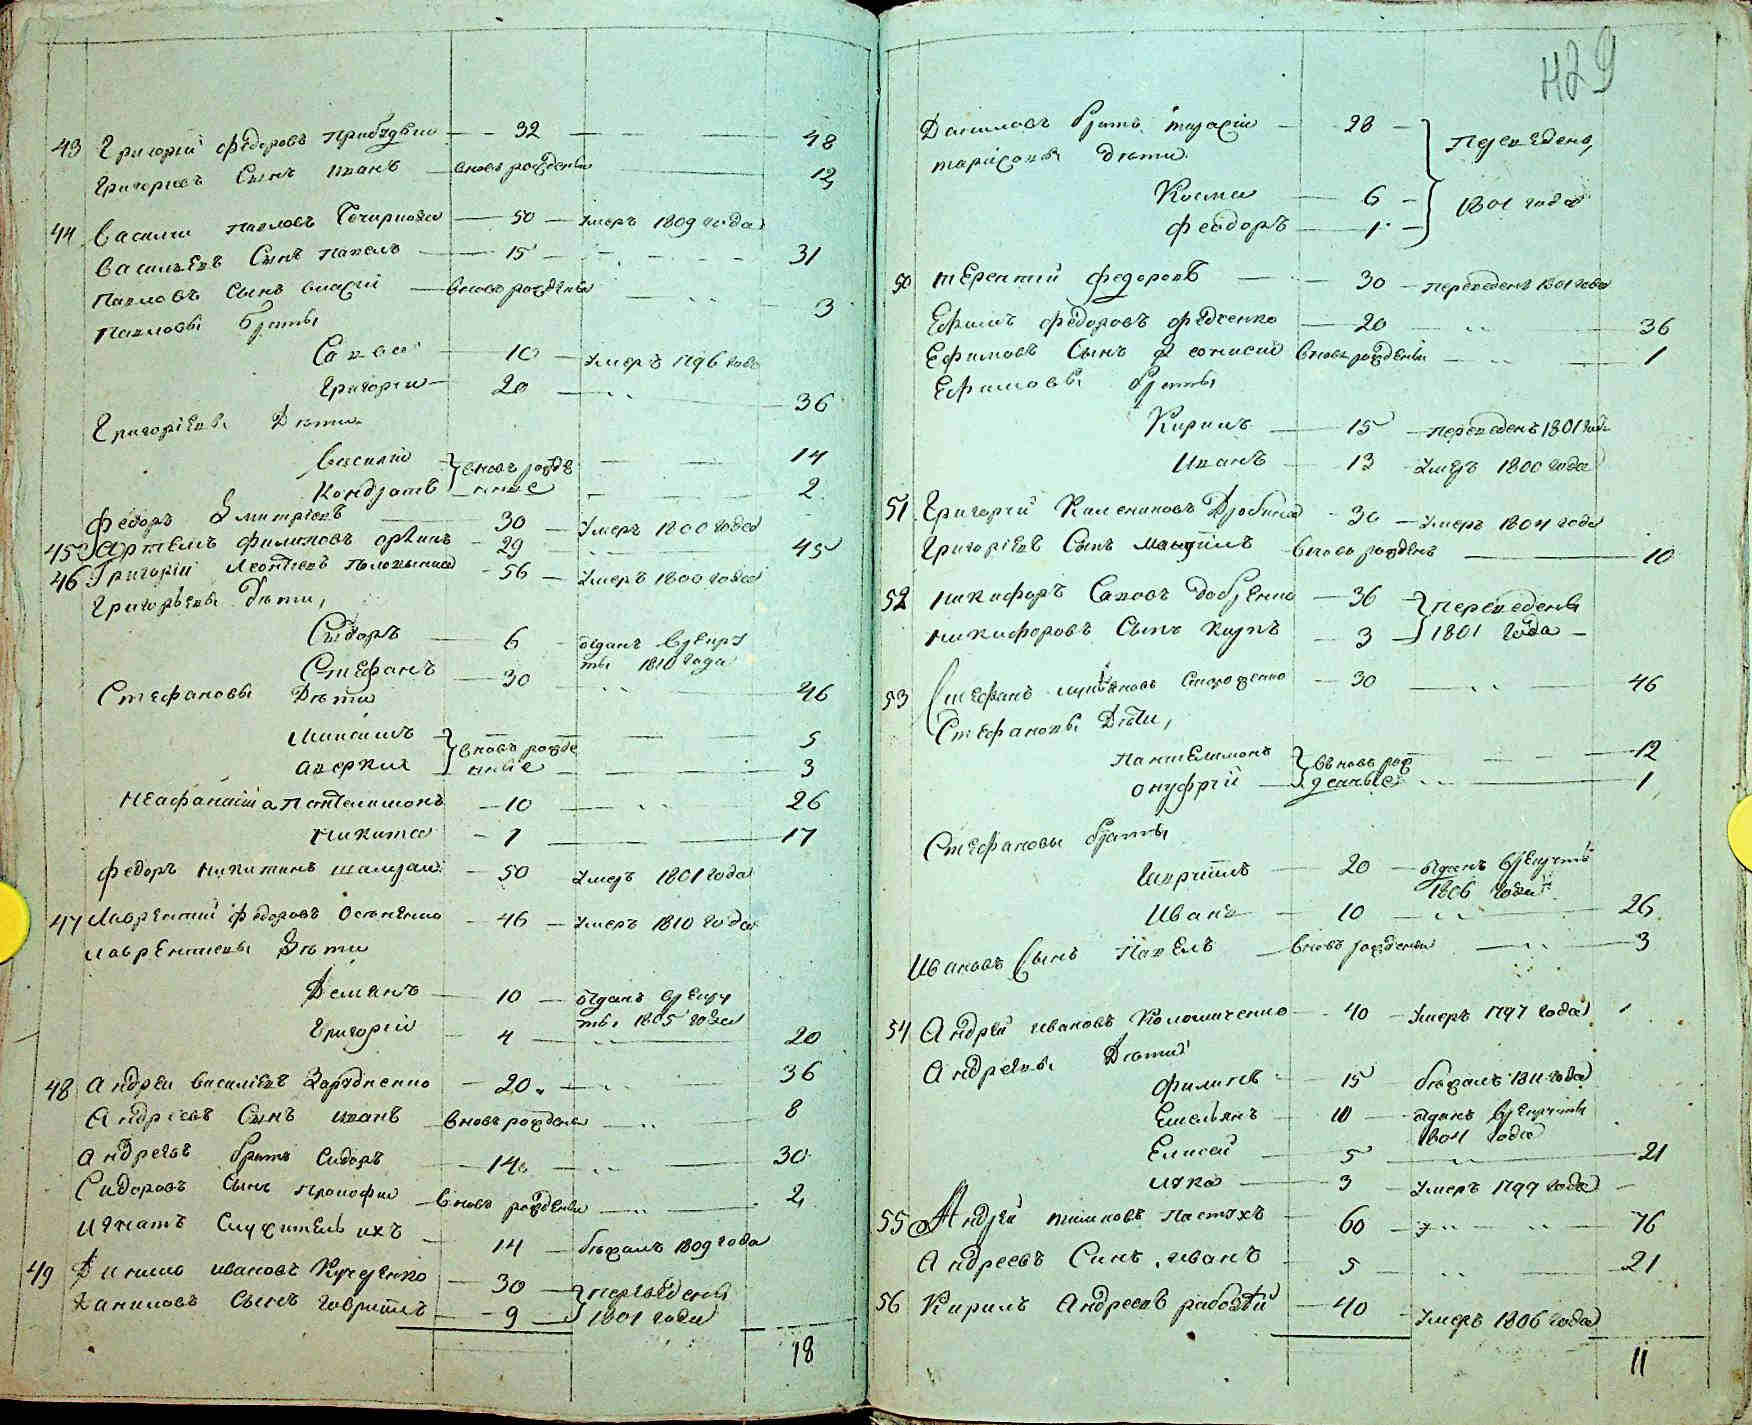 43 Григорий Федоров 32 48
Григориевъ Сынъ Иванъ вновь рожденъ 12
44 Василий Павловъ 50 умеръ 1809 года
Васильевъ Сынъ Павелъ 15 31
Павловъ Сынъ вновь рожденъ 3
Павловы братья
Савва 10 умеръ 1796 года
Григорий 20 36
Григориевы Дѣти
Василий вновь рожде 14
Кондратъ нные 2
Федоръ Дмитриевъ 30 умеръ 1800 года
45 Артемъ Филиповъ 29 45
46 Григорий Леонтиевъ 56 умеръ 1800 года
Григорьевы дѣти,
Сидоръ 6 отданъ врекру
ты 1810 года
Стефанъ 30 46
Стефановы Дѣти
Максимъ вновь рожде 5
аверкий нные 3
Пантелимонъ 10 26
Никита 7 17
Федоръ Никитинъ 50 умеръ 1801 года
47 Лаврентий Федоровъ 46 умеръ 1810 года
Лаврентиевы Дѣти
Демянъ 10 отданъ врекру
ты 1805 года
Григорий 4 20
48 Андрей Василиевъ Зарудненко 20 36
Андриевъ Сынъ иванъ вновь рожденъ 8
Андреевъ братъ Сидоръ 14 30
Сидоровъ Сынъ Прокофий вновь рожденъ 2
Игнатъ Служитель ихъ 14 бѣжалъ 1809 года
49 Данило ивановъ Кучеренко 30 переведены
Даниловъ Сынъ Гаврилъ 9 1801 года
18
429
Даниловъ братъ тарасий 28 Переведены,
тарасовы дѣти
Косма 6 1801 года
Феодоръ 1
50 терентий Федоровъ 30 переведенъ 1801 года
Ефимъ Федоровъ Федченко 20 36
Ефимовъ Сынъ вновь рожденъ 1
Ефимовы братья
Кирилъ 15 переведенъ 1801 года
Иванъ 13 умеръ 1800 года
51 Григорий 30 умеръ 1804 года
Григориевъ Сынъ вновь рожденъ 10
52 Никифоръ Савовъ 36 переведены
Никифоровъ Сынъ 3 1801 года
53 Стефанъ Стороженко 30 46
Стефановы Дѣти,
Пантелимонъ вновь рож 12
онуфрий денные 1
Стефановы братья
20 отданъ врекруты
1806 года
Иванъ 10 26
Ивановъ Сынъ Павелъ вновь рожденъ 3
54 Андрей ивановъ Коломиченко 40 умеръ 1797 года
Андреевы Дѣти
Филипъ 15 бѣжалъ 1811 года
Емельянъ 10 отданъ врекруты
1804 года
Елисей 5 21
3 умеръ 1799 года
55 Андрей Пастухъ 60 76
Андреевъ Синъ иванъ 5 21
56 Кирилъ Андреевъ 40 умеръ 1806 года
11